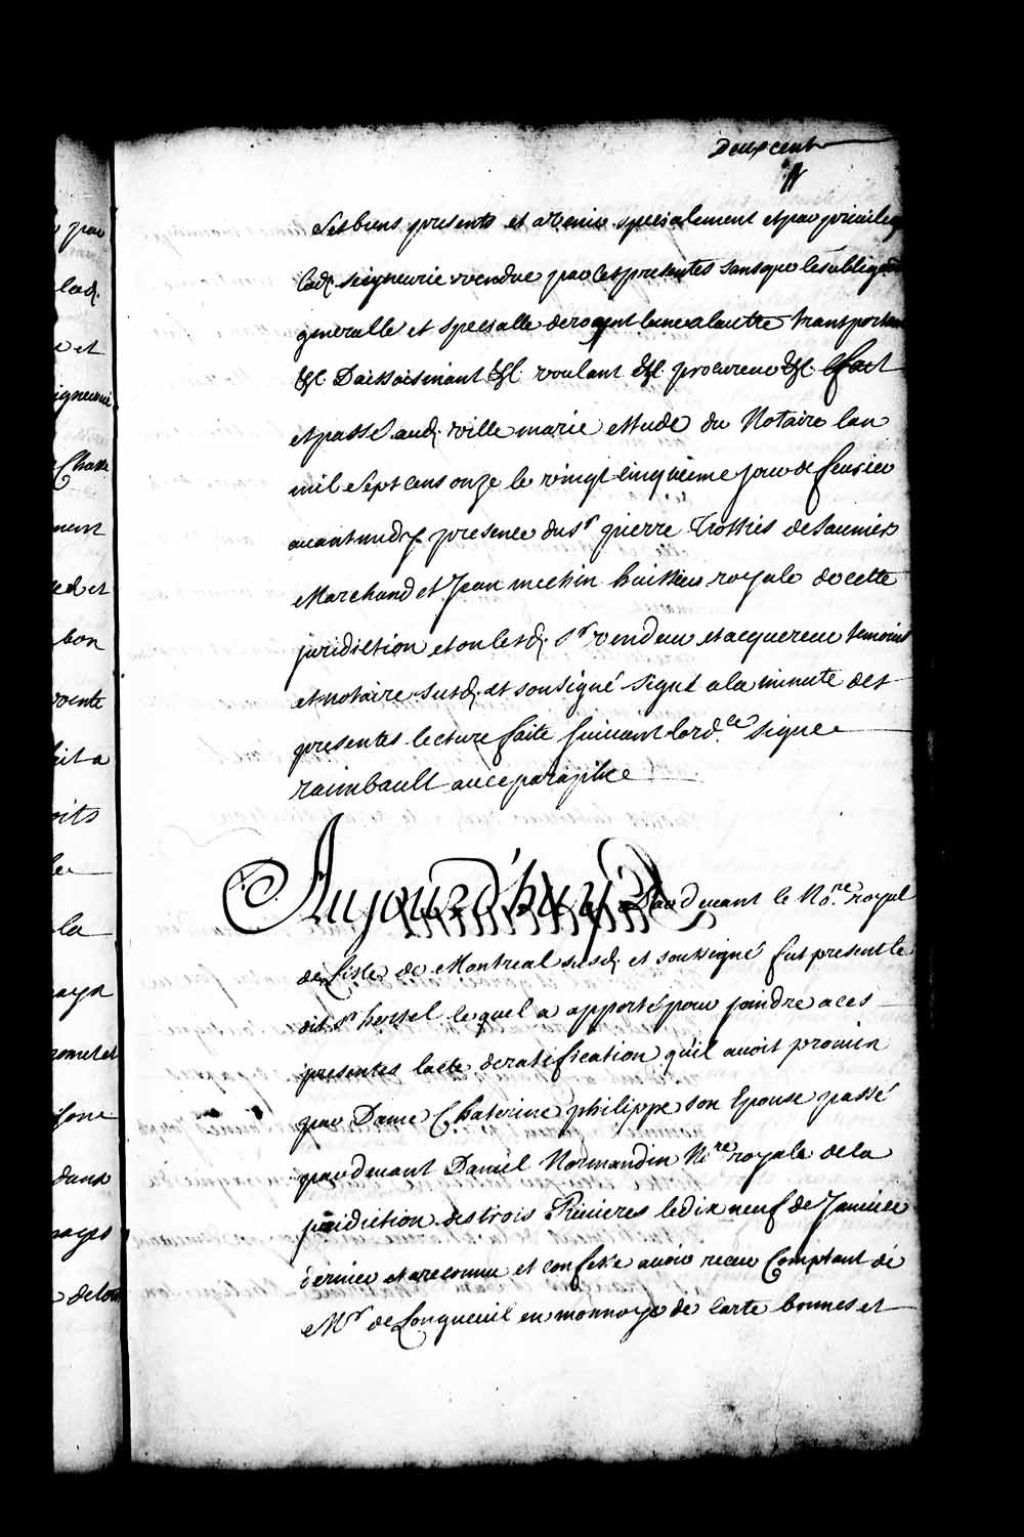 Deux cent
Ses biens presents et avenir specialement et par privileg
lad. seigneurie vendue par ces presentes sans que les obligaõns
generalle et specialle derogent l'une a l'autre transportan
&c. Daissaisinant &c. voulant &c. procureur &c. fait
et passé aud. ville marie estude du Notaire lan
mil sept cens onze le vingt cinquieme jour de fevrier
avant midy presence du Sr. pierre Trottier desaunier
Marchand et Jean meschin huissier royale de cette
juridiction et ont lesd. Srs vendeur et acquereur temoins
et notaire susd. et sousigné signé a la minute des
presentes lecture faite suivant lord.ce signée
raimbault avec paraphe
Aujourd'huy Pardevant le No.re royal
de Lisle de Montreal susd. et sousigné fut present le
dit Sr hertel lequel a apporté pour joindre a ces
presentes lacte de ratification qu'il avoit promis
par Dame Chaterine philippe son Epouse passé
pardevant Daniel Normandin N.re royale de la
juridiction des trois Rivieres le dix neuf de Janvier
dernier et a reconnu et confessé avoir receu Comptant de
Mr de Longueuil en monnoye de carte bonnes et
par
lad.
et
igneurie
ment
bon
vente
oits
la
dans